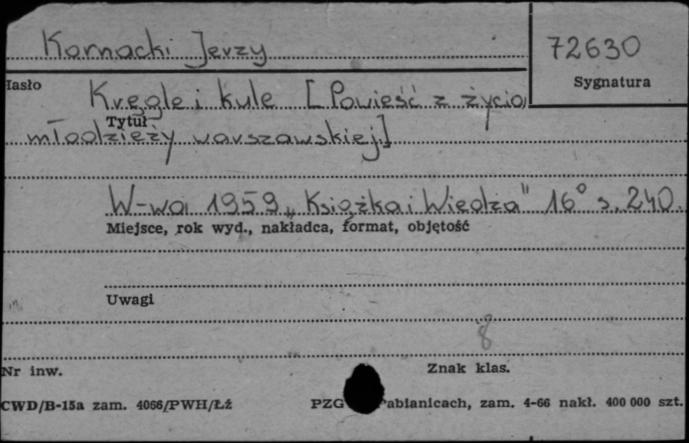 Kornacki Jerzy
72630
Hasło
Sygnatura
Kręgle i kule [Powieść z życia
Tytuł
młodzieży warszawskiej]
W-wa 1959 „Książka i Wiedza" 16° s. 240.
Miejsce, rok wyd., nakładca, format, objętość
Uwagi
8
Nr inw.
Znak klas.
CWD/B-15a zam. 4066/PWH/Łź
PZG Pabianicach, zam. 4-66 nakł. 400 000 szt.